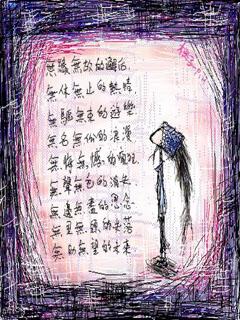 無緣無故的邂逅
無休無止的熱情
無驅無束的遊樂
無名無份的浪漫
無悔無憾的
無聲無色的消失
無邊無盡的思念
無里無的失落
無助無望的未來